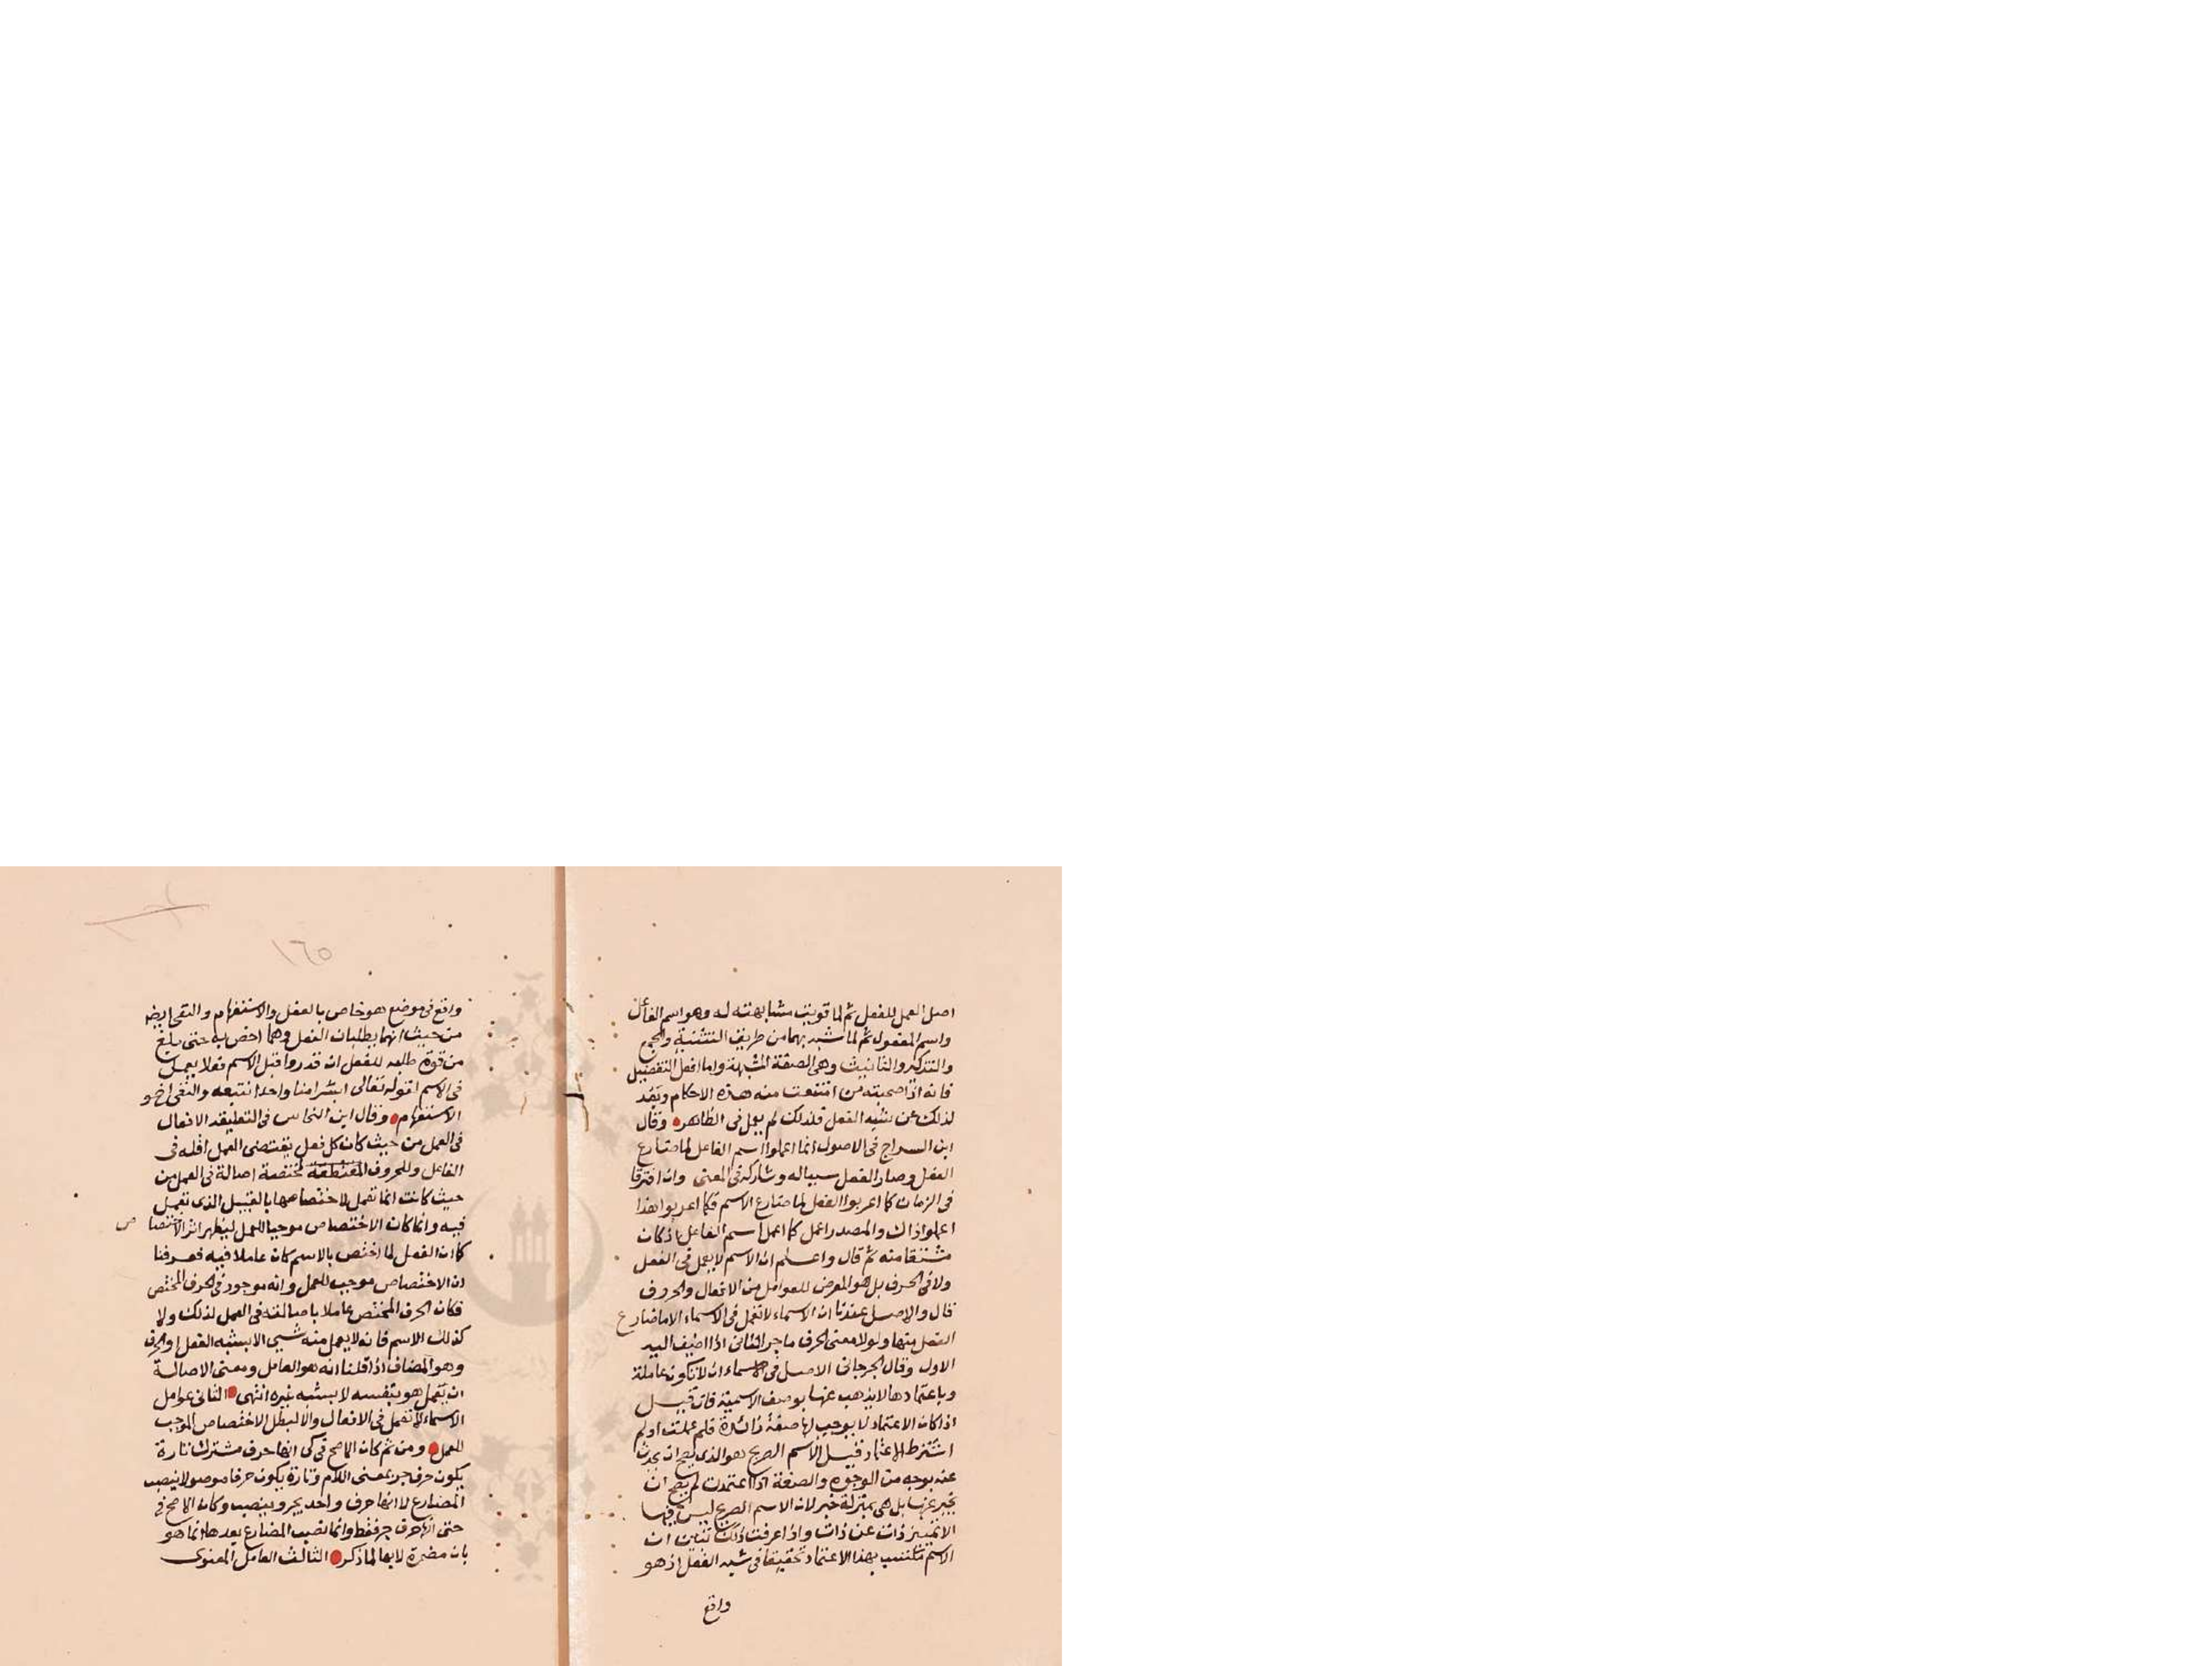 اصل العمل للفعل ثم لما قويت مشابهته له وهو اسم الفاعل
واسم المفعول ثم لما شبه بهما من طريق التثنية والجمع
والتذكير والتانيث وهي الصفة المشبهة واما افعل التفضيل
فانه اذا صحبته من امتنعت منه هذه الاحكام وبعد
لذلك عن شبه الفعل فلذلك لم يعمل في الظاهر وقال
ابن السراج في الاصول انما اعملوا اسم الفاعل لما ضارع
الفعل وصار الفعل سببا له وشاركه في المعنى وان افترقا
في الزمان كما اعربوا الفعل لما ضارع الاسم فكما اعربوا هذا
اعملوا ذاك والمصدر اعمل كما اعمل اسم الفاعل اذ كان
مشتقا منه ثم قال واعلم ان الاسم لا يعمل في الفعل
ولا في الحرف بل هو المعرض للعوامل من الافعال والحروف
قال والاصل عندنا ان الاسماء لا تعمل في الاسماء الا ما ضارع
الفعل منها ولولا معنى الحرف ما جر الثاني اذا اضيف اليه
الاول وقال الجرجاني الاصل في الاسماء ان لا تكون عاملة
وباعتمادها لا يذهب عنها بوصف الاسمية فان قيل
اذا كان الاعتماد لا يوجب لها صفة زائدة فلم عملت اولم
اشترط الاعتماد قيل الاسم الصريح هو الذي يصح ان يحدث
عنه بوجه من الوجوه والصفة اذا اعتمدت لم يصح ان
يخبر عنها بل هي بمنزلة خبر لان الاسم الصريح ليس فيها
الا تمييز ذات عن ذات واذا عرفت ذلك تبين ان
الاسم تكتسب بهذا الاعتماد تحقيقا في شبه الفعل اذ هو
واقع
١٦٥
واقع في موضع هو خاص بالفعل والاستفهام والنفي ايضا
من حيث انهما يطلبان الفعل وهما اخص به حتى بلغ
من قوة طلبه للفعل ان قدروا قبل الاسم فعلا يعمل
في الاسم لقوله تعالى ابشرا منا واحدا نتبعه والنفي اخو
الاستفهام وقال ابن النحاس في التعليقه الافعال
في العمل من حيث كان كل فعل يقتضي العمل اقله في
الفاعل وللحروف المختصة اصالة في العمل من
حيث كانت انما تعمل لاختصاصها بالقبيل الذي تعمل
فيه وانما كان الاختصاص موجبا للعمل ليظهر اثر الاختصا ص
كما ان الفعل لما اختص بالاسم كان عاملا فيه فعرفنا
ان الاختصاص موجب للعمل وانه موجود في الحرف المختص
فكان الحرف المختص عاملا باصالته في العمل لذلك ولا
كذلك الاسم فانه لا يعمل منه شيي الا بشبه الفعل او الحرف
وهو المضاف اذا قلنا انه هو العامل ومعنى الاصالة
ان يعمل هو بنفسه لا بشبه غيره انتهى الثاني عوامل
الاسماء لا تعمل في الافعال والا لبطل الاختصاص الموجب
للعمل ومن ثم كان الاصح في كي انها حرف مشترك تارة
يكون حرف جر بمعنى اللام وتارة يكون حرفا موصولا ينصب
المضارع لا انها حرف واحد يجر وينصب وكان الاصح في
حتى انها حرف جر فقط وانما نصب المضارع بعدها انما هو
بان مضمرة لا بها لما ذكر الثالث العامل المعنوى